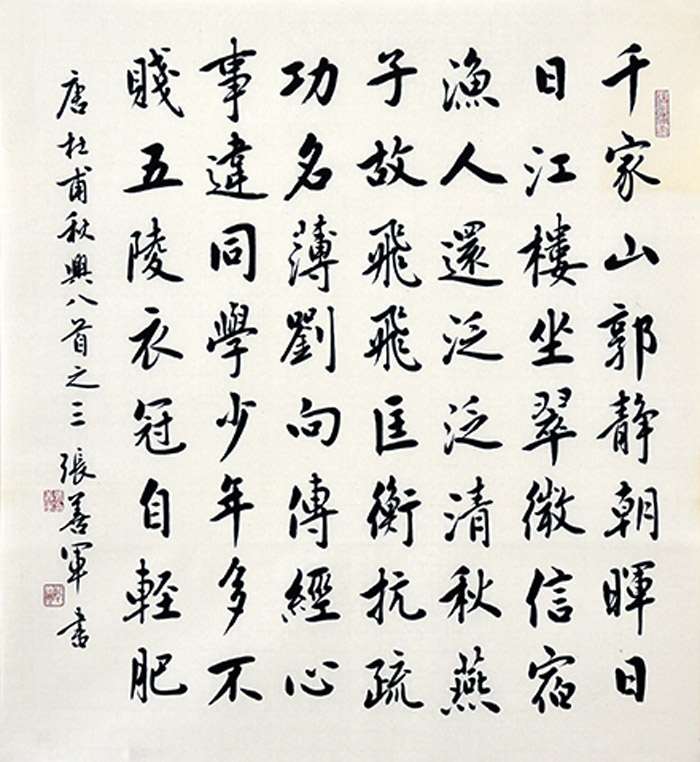 千家山郭靜朝暉日
日江樓坐翠微信宿
漁人還泛泛清秋燕
子故飛飛匡衡抗疏
功名薄劉向傳經心
事違同學少年多不
賤五陵衣冠自輕肥
唐杜甫秋興八首之三 張善軍书